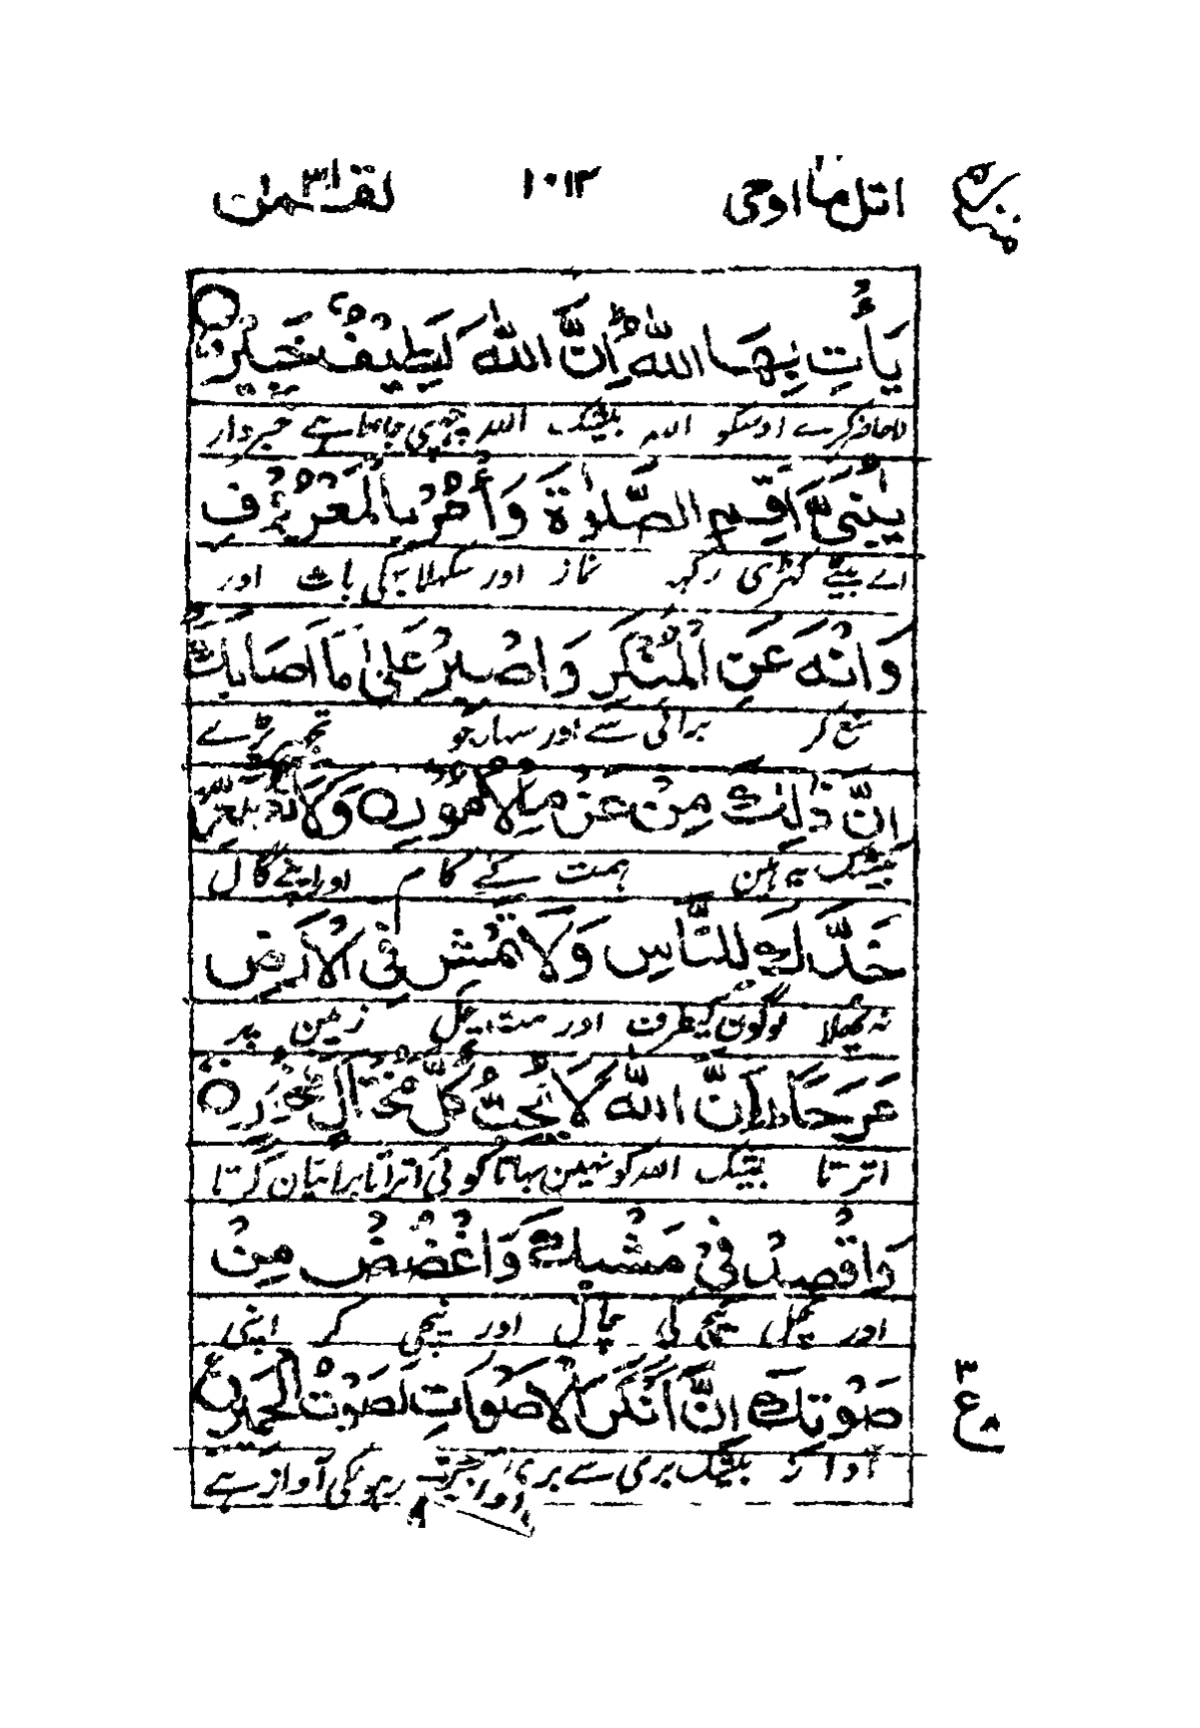 اتل ما اوحی ۱۰۱۳ لقمٰن ۳۱
یَأْتِ بِهَا اللّٰهُ ؕ اِنَّ اللّٰهَ لَطِیْفٌ خَبِیْرٌ ○
لاحاضر کرے اوسکو الله بیشک الله چھپی جانتا ہے خبردار
یٰبُنَیَّ اَقِمِ الصَّلٰوةَ وَأْمُرْ بِالْمَعْرُوْفِ
اے بیٹے کھڑی رکھہ نماز اور سکھلا بھلی بات اور
وَانْهَ عَنِ الْمُنْكَرِ وَاصْبِرْ عَلٰی مَا اَصَابَكَ
منع کر برائی سے اور سہار جو تجھپر پڑے
اِنَّ ذٰلِكَ مِنْ عَزْمِ الْاُمُوْرِ ○ وَلَا تُصَعِّرْ
بیشک یہ ہین ہمت کے کام اور اپنے گال
خَدَّكَ لِلنَّاسِ وَلَا تَمْشِ فِی الْاَرْضِ
نہ پھلا لوگون کیطرف اور مت چل زمین پر
مَرَحًا ؕ اِنَّ اللّٰهَ لَا یُحِبُّ كُلَّ مُخْتَالٍ فَخُوْرٍ ○
اترتا بیشک الله کو نہین بہاتا کوئی اتراتا برائیان کرتا
وَاقْصِدْ فِیْ مَشْیِكَ وَاغْضُضْ مِنْ
اور چل بیچ کی چال اور نیچی کر اپنی
صَوْتِكَ اِنَّ اَنْكَرَ الْاَصْوَاتِ لَصَوْتُ الْحَمِیْرِ
آواز بیشک بری سے بری آواز گدہونکی آواز ہے